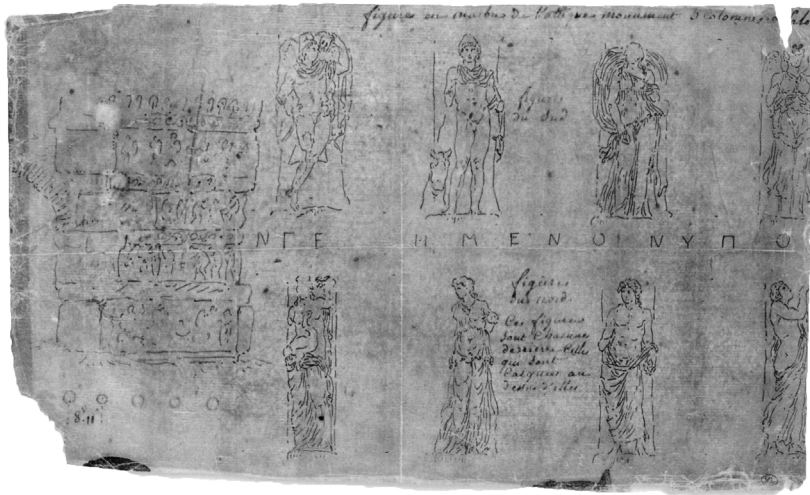 figures en marbre de l'attique monument 5 colonnes
figures
du Sud
Ν Γ Ε Η Μ Ε Ν Ο Ι Ν Υ Π Ο
figures
du nord.
Ces figures
sont chacune
derriere celles
qui sont
calquees au
dessus d'elles